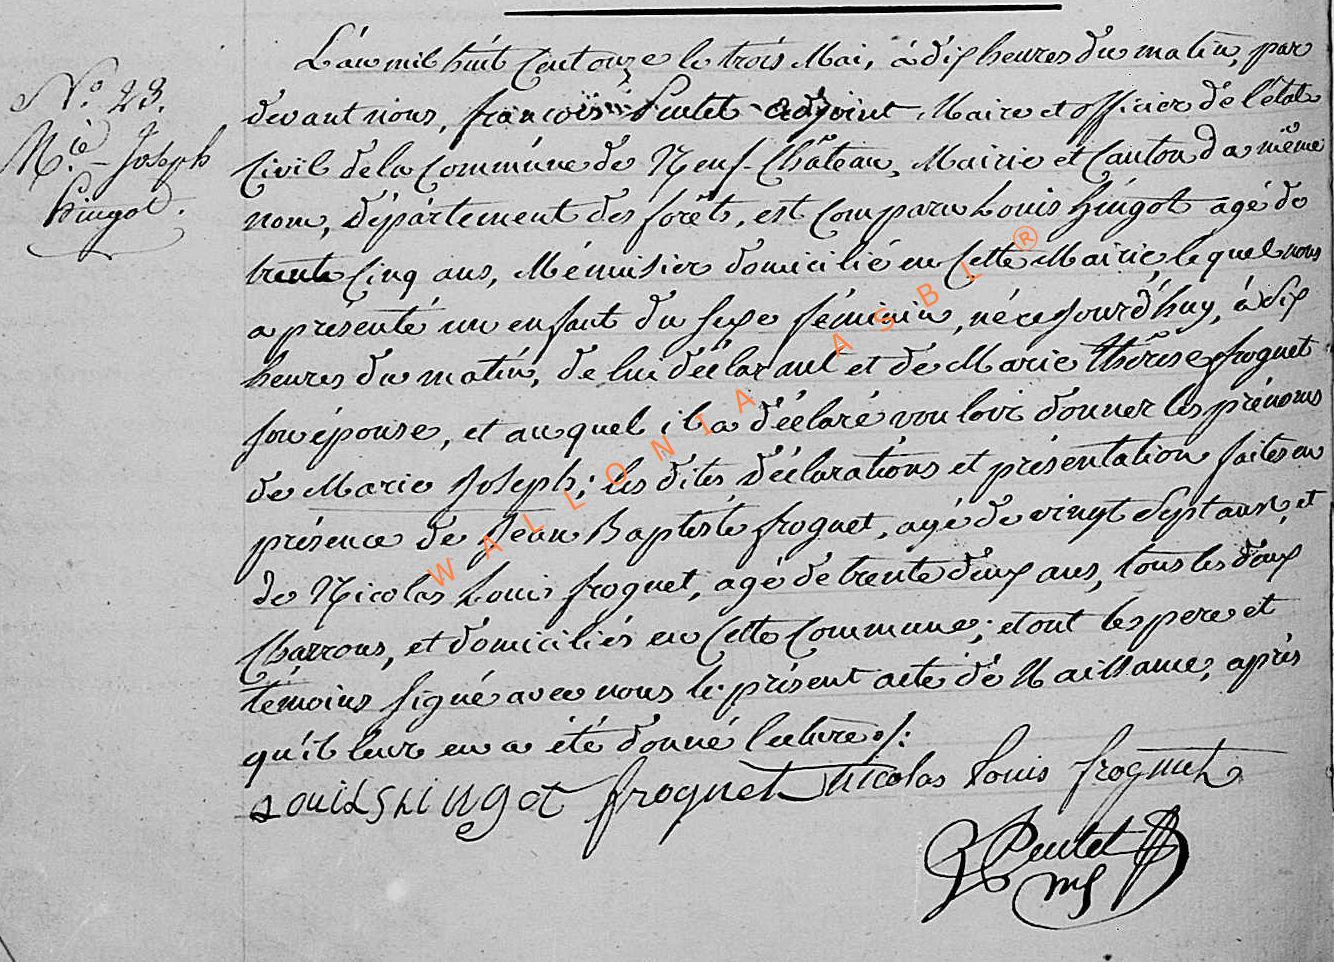 N.° 23.
M.ie - Joseph
hingot.
L'an mil huit Cent onze le trois Mai, à dix heures du matin, par
devant nous, françois Pentet adjoint Maire et officier de l'état
Civil de la Commune de Neuf-Château, Mairie et Canton du même
nom, département des forêts, est comparu Louis hingot agé de
trente Cinq ans, Ménuisier domicilié en Cette Mairie lequel nous
a présenté un enfant du sexe féminin, née cejourd'huy, à dix
heures du matin, de lui déclarant et de Marie thérese froguet
son épouse, et auquel il a déclaré vouloir donner les prénoms
de Marie Joseph; les dites déclarations et présentation faites en
présence de Jean Baptiste froguet, agé de vingt Sept ans, et
de Nicolas Louis froguet, agé de trente deux ans, tous les deux
Charrons, et domiciliés en Cette Commune; et ont les pere et
témoins signé avec nous le présent acte de Naissance, après
qu'il leur en a été donné lecture ./:
Louis hingot froguet nicolas Louis froguet
Pentet
WALLONIA ASBL ®